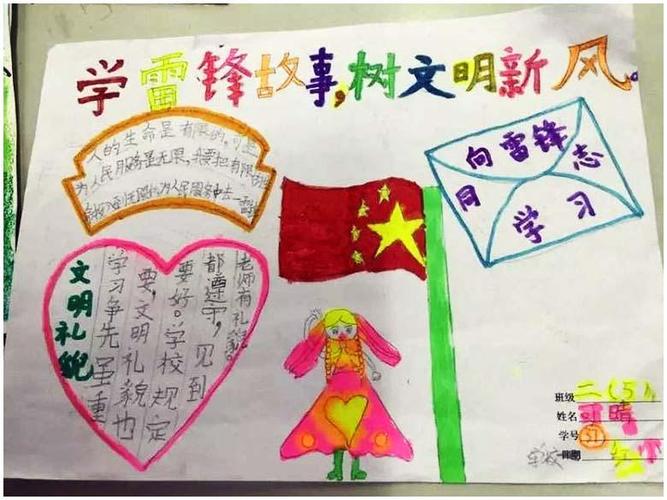 学雷锋故事,树文明新风。
人的生命是有限的,可是
为人民服务是无限,我要把有限的
为人民服务中去
向雷锋
同 志
学 习
文明礼貌
学习争先虽重
要,文明礼貌也
要好。学校规定
都遵守,见到
老师有礼貌。
班级 二(5)
姓名 可晴
学号 51
学校